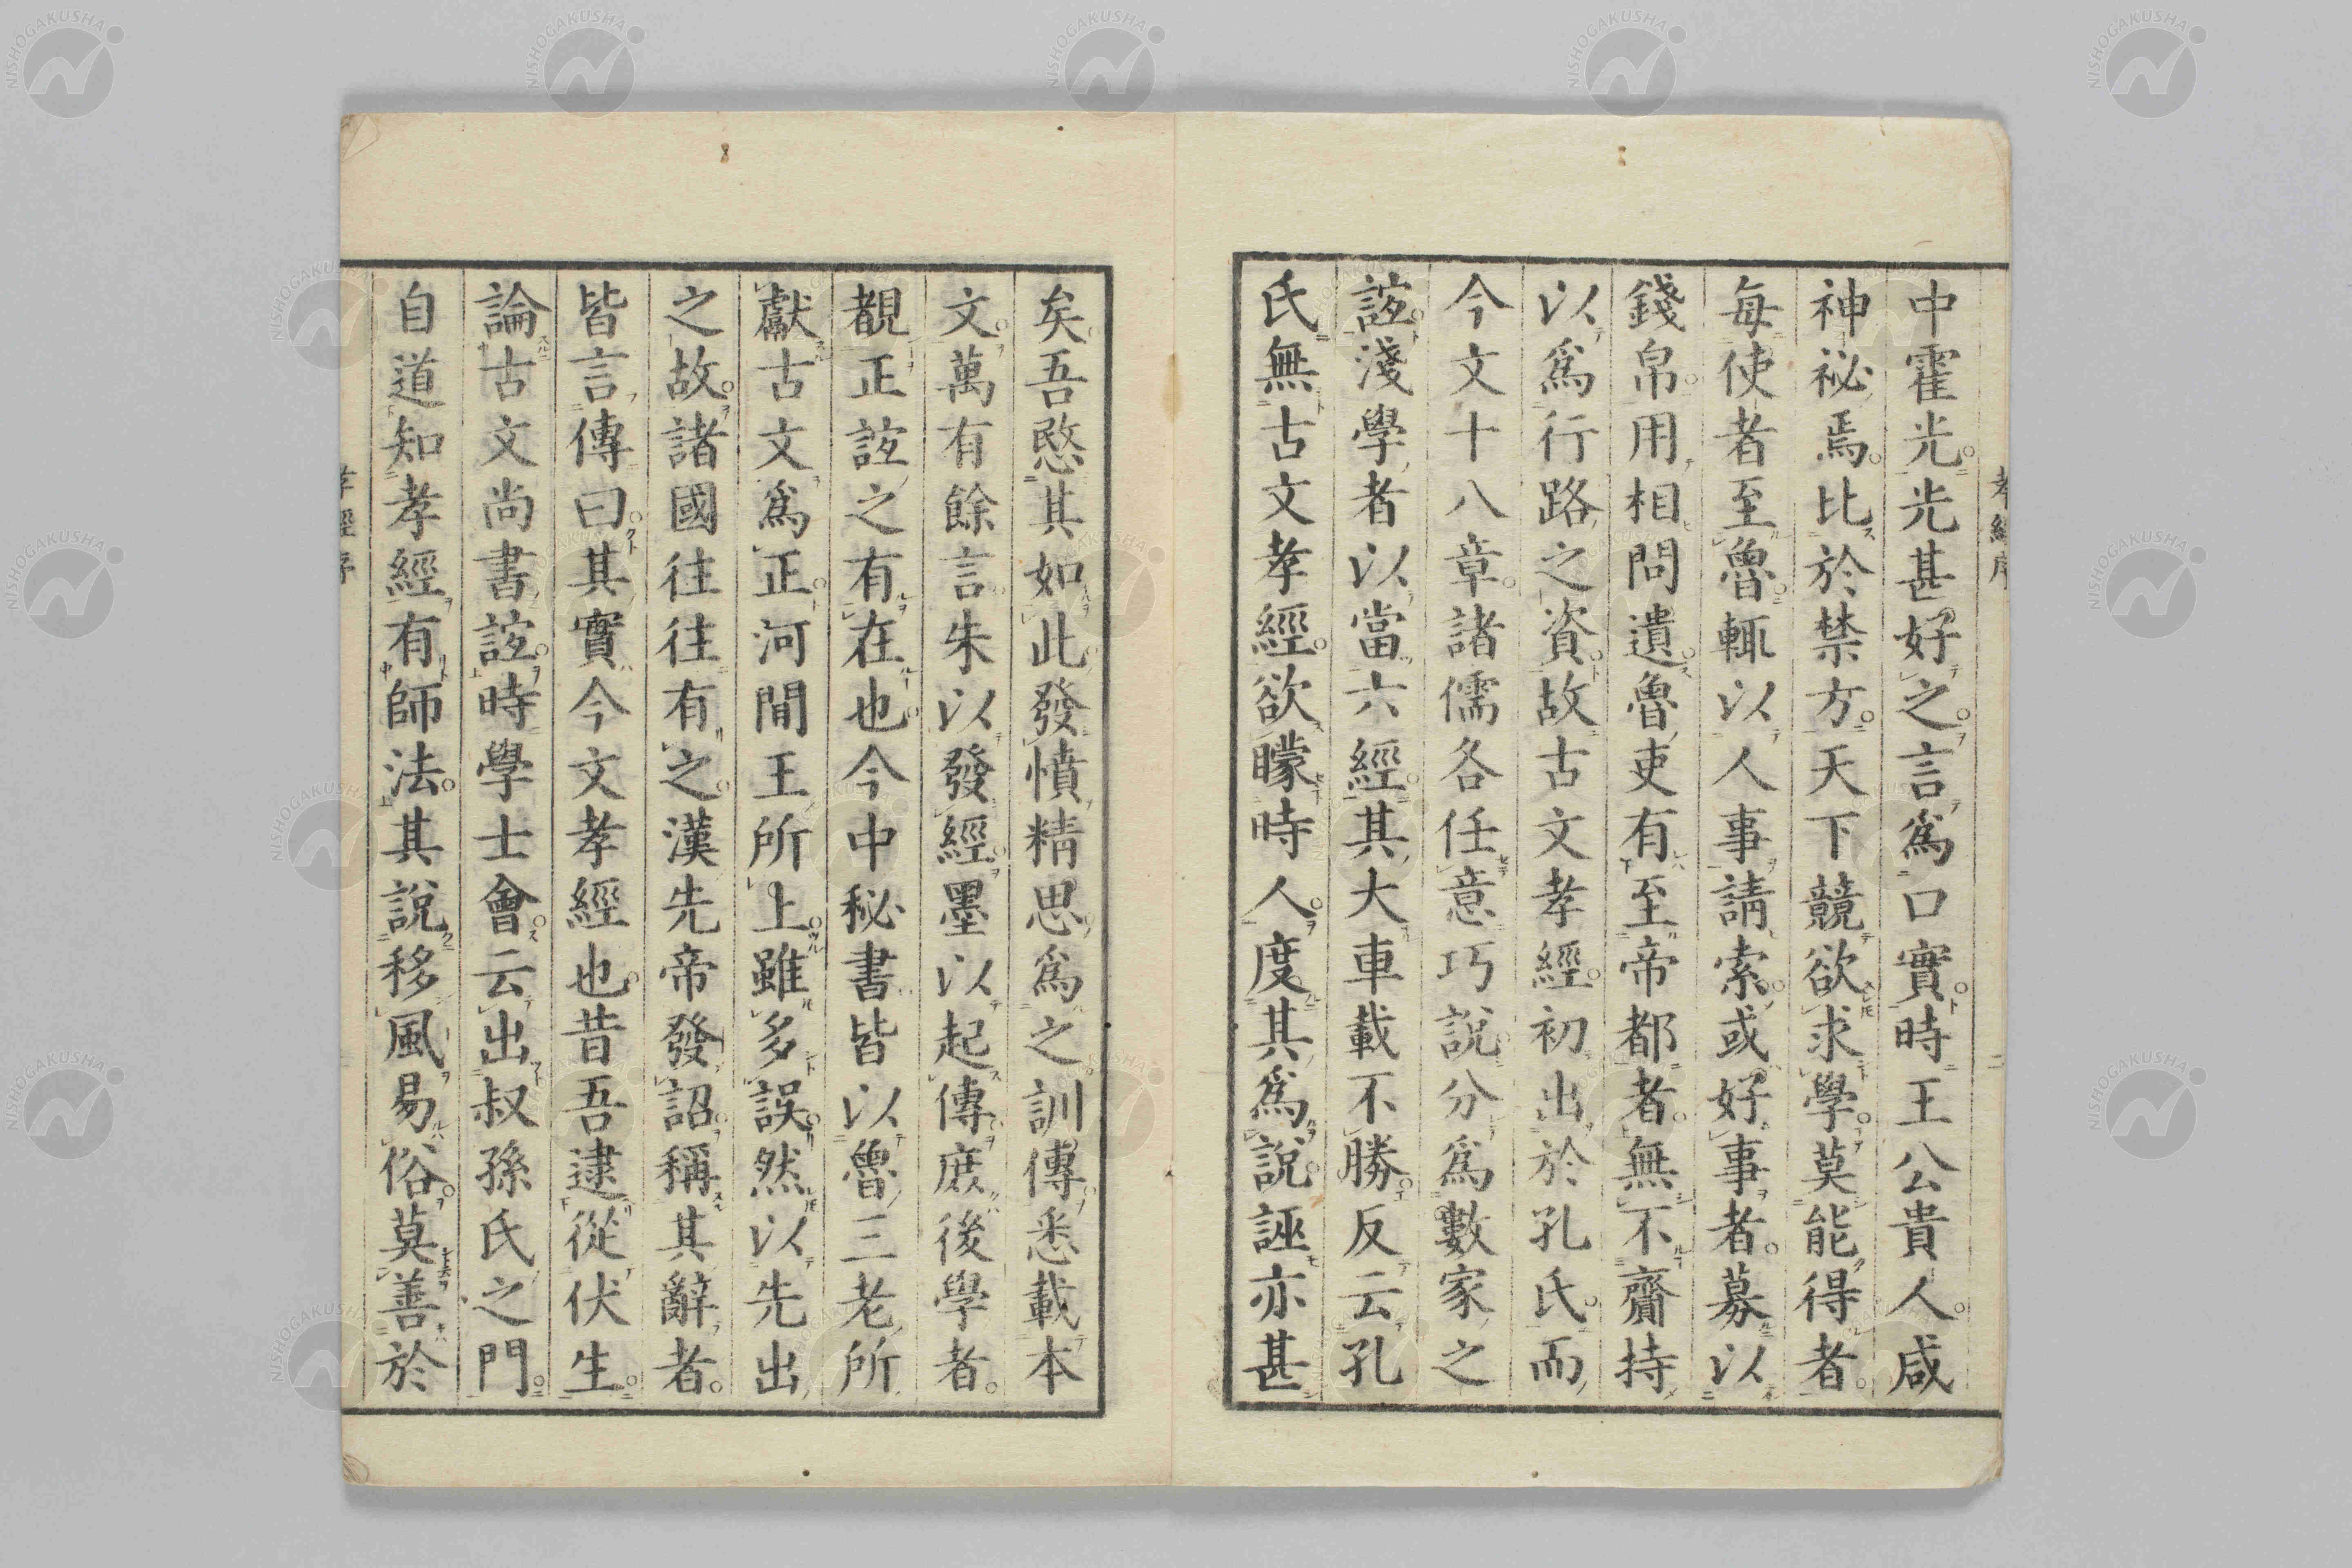 中霍光光甚好之言為口實時王公貴人咸
神祕焉比於禁方天下競欲求學莫能得者
每使者至魯輒以人事請索或好事者募以
錢帛用相問遺魯吏有至帝都者無不齎持
以為行路之資故古文孝經初出於孔氏而
今文十八章諸儒各任意巧說分為數家之
誼淺學者以當六經其大車載不勝反云孔
氏無古文孝經欲矇時人度其為說誣亦甚
矣吾愍其如此發憤精思為之訓傳悉載本
文萬有餘言朱以發經墨以起傳庶後學者
覩正誼之有在也今中秘書皆以魯三老所
獻古文為正河間王所上雖多誤然以先出
之故諸國往往有之漢先帝發詔稱其辭者
皆言傳曰其實今文孝經也昔吾逮從伏生
論古文尚書誼時學士會云出叔孫氏之門
自道知孝經有師法其說移風易俗莫善於
孝經序
NISHOGAKUSHA